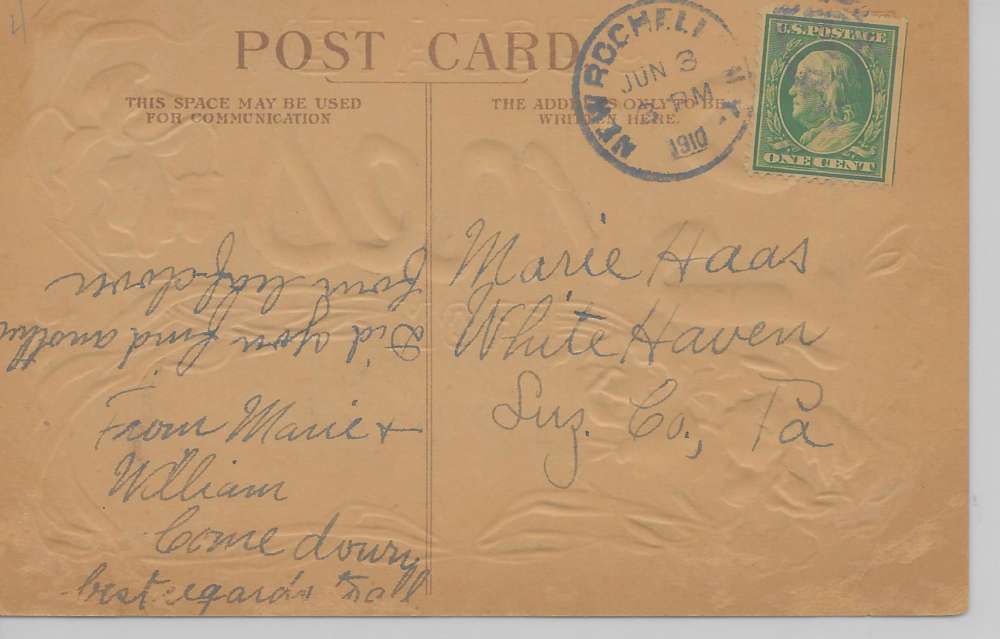 POST CARD
THIS SPACE MAY BE USED
FOR COMMUNICATION
THE ADDRESS ONLY TO BE
WRITTEN HERE.
NEW ROCHELL
JUN 3
PM
1910
N.Y.
U.S. POSTAGE
ONE CENT
Marie Haas
White Haven
Luz. Co., Pa
Did you find another
four leaf clover
From Marie +
William
Come down
best egards to all